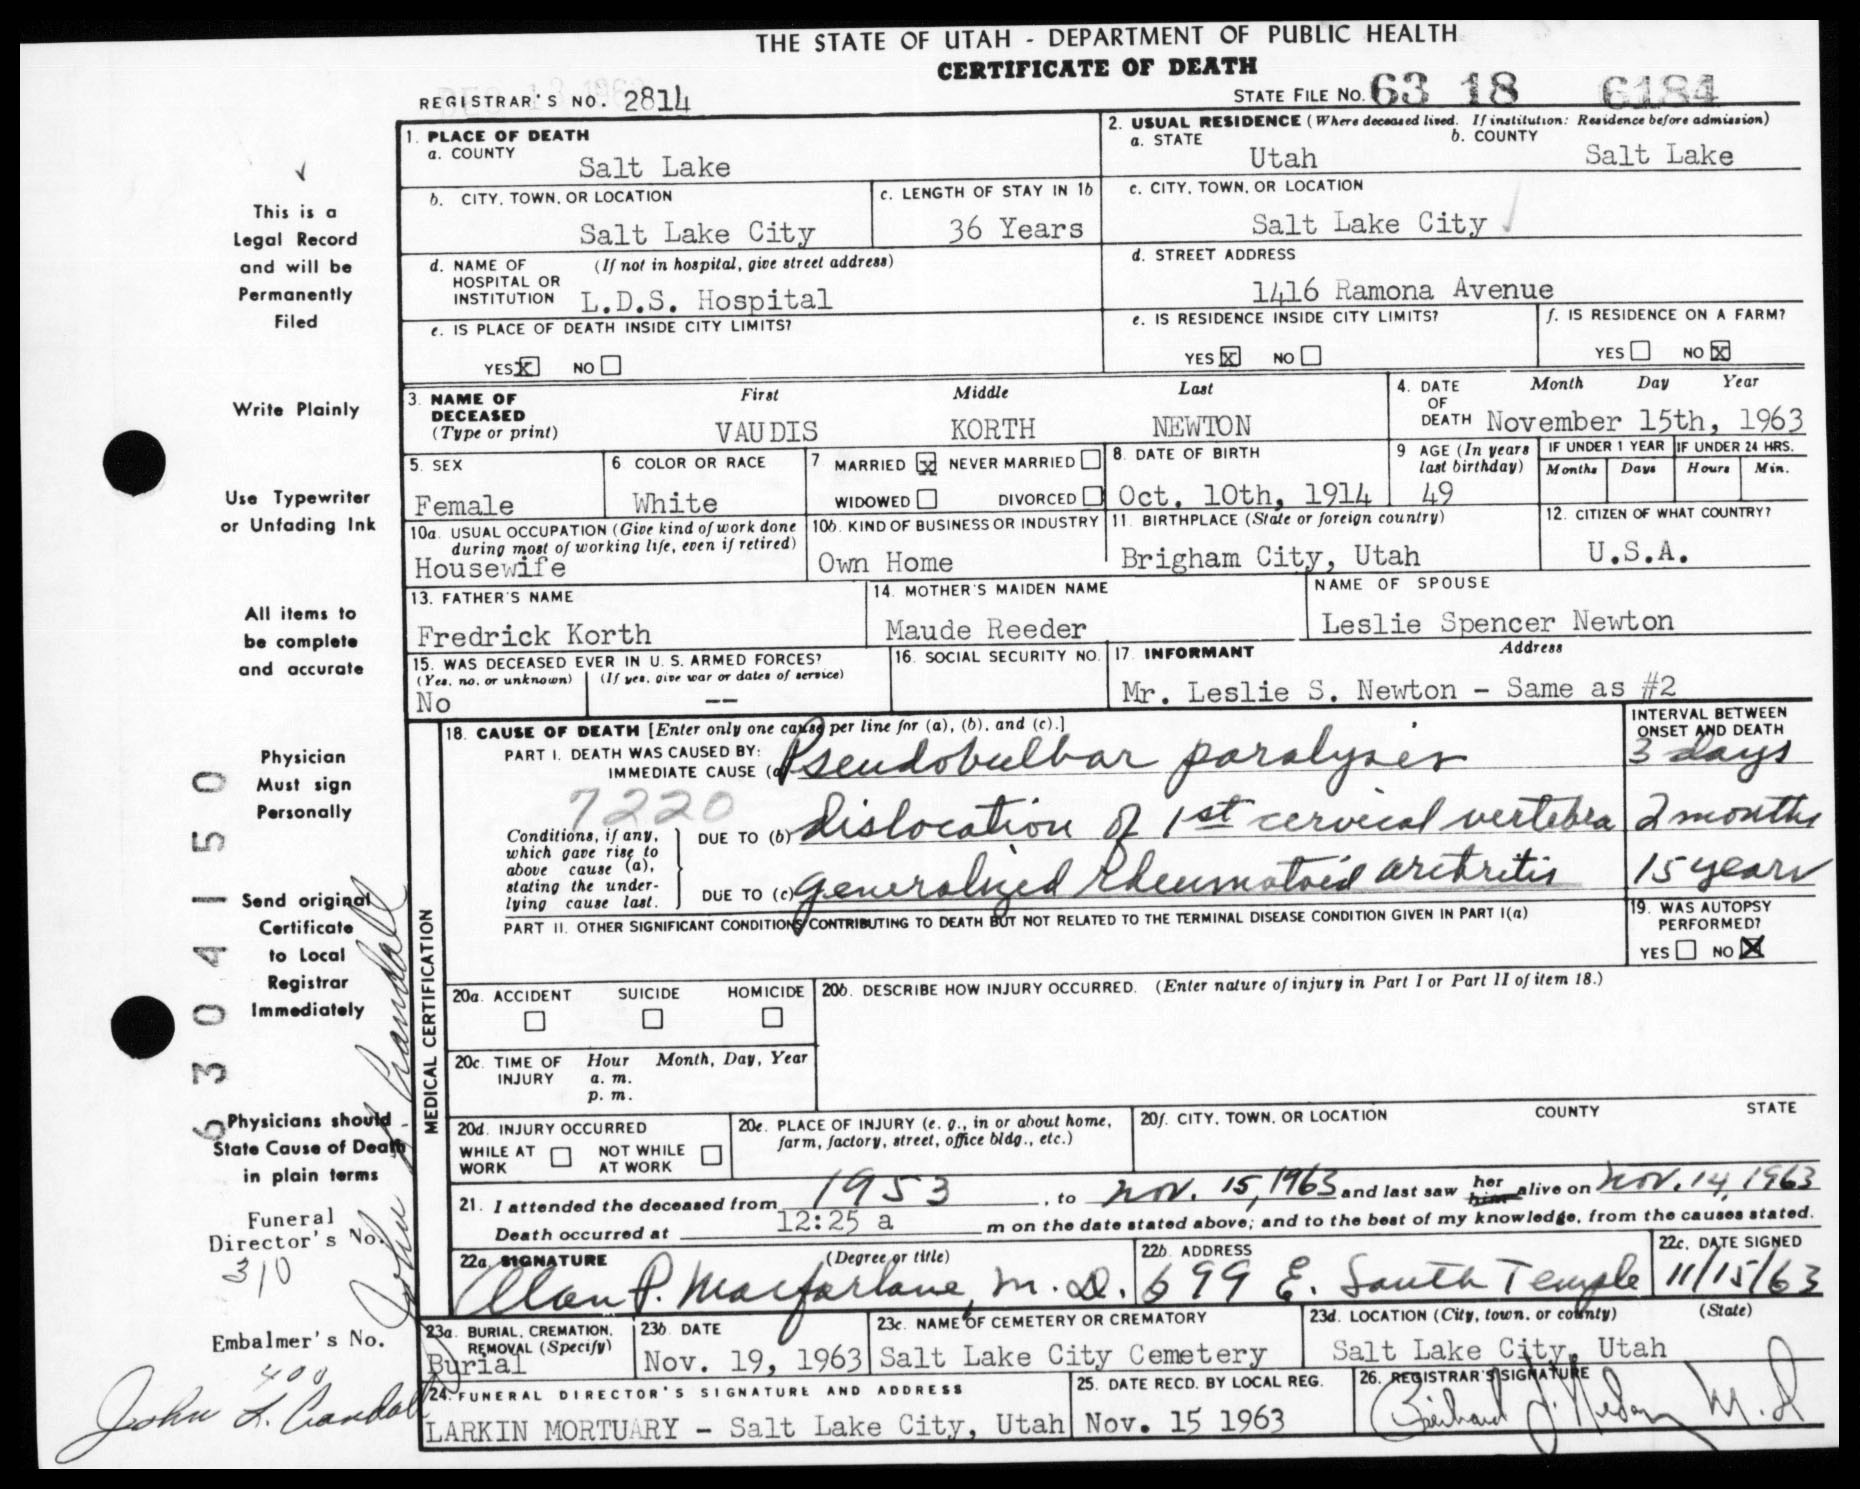 THE STATE OF UTAH - DEPARTMENT OF PUBLIC HEALTH
CERTIFICATE OF DEATH
REGISTRAR'S NO. 2814
STATE FILE NO. 63 18 6184
1. PLACE OF DEATH
a. COUNTY
Salt Lake
2. USUAL RESIDENCE (Where deceased lived. If institution: Residence before admission)
a. STATE b. COUNTY
Utah Salt Lake
b. CITY, TOWN, OR LOCATION
Salt Lake City
c. LENGTH OF STAY IN 1b
36 Years
c. CITY, TOWN, OR LOCATION
Salt Lake City
d. NAME OF HOSPITAL OR INSTITUTION (If not in hospital, give street address)
L.D.S. Hospital
d. STREET ADDRESS
1416 Ramona Avenue
e. IS PLACE OF DEATH INSIDE CITY LIMITS?
YES X NO
e. IS RESIDENCE INSIDE CITY LIMITS?
YES X NO
f. IS RESIDENCE ON A FARM?
YES NO X
3. NAME OF DECEASED (Type or print)
First Middle Last
VAUDIS KORTH NEWTON
4. DATE OF DEATH Month Day Year
November 15th, 1963
5. SEX
Female
6. COLOR OR RACE
White
7. MARRIED X NEVER MARRIED
WIDOWED DIVORCED
8. DATE OF BIRTH
Oct. 10th, 1914
9. AGE (In years last birthday)
49
IF UNDER 1 YEAR IF UNDER 24 HRS.
Months Days Hours Min.
10a. USUAL OCCUPATION (Give kind of work done during most of working life, even if retired)
Housewife
10b. KIND OF BUSINESS OR INDUSTRY
Own Home
11. BIRTHPLACE (State or foreign country)
Brigham City, Utah
12. CITIZEN OF WHAT COUNTRY?
U.S.A.
13. FATHER'S NAME
Fredrick Korth
14. MOTHER'S MAIDEN NAME
Maude Reeder
NAME OF SPOUSE
Leslie Spencer Newton
15. WAS DECEASED EVER IN U. S. ARMED FORCES?
(Yes, no, or unknown) (If yes, give war or dates of service)
No --
16. SOCIAL SECURITY NO.
17. INFORMANT Address
Mr. Leslie S. Newton - Same as #2
MEDICAL CERTIFICATION
18. CAUSE OF DEATH [Enter only one cause per line for (a), (b), and (c).]
INTERVAL BETWEEN ONSET AND DEATH
PART I. DEATH WAS CAUSED BY:
IMMEDIATE CAUSE (a) Pseudobulbar paralysis 3 days
7220
Conditions, if any, which gave rise to above cause (a), stating the underlying cause last.
DUE TO (b) dislocation of 1st cervical vertebra 2 months
DUE TO (c) generalized rheumatoid arthritis 15 years
PART II. OTHER SIGNIFICANT CONDITIONS CONTRIBUTING TO DEATH BUT NOT RELATED TO THE TERMINAL DISEASE CONDITION GIVEN IN PART I(a)
19. WAS AUTOPSY PERFORMED?
YES NO X
20a. ACCIDENT SUICIDE HOMICIDE
20b. DESCRIBE HOW INJURY OCCURRED. (Enter nature of injury in Part I or Part II of item 18.)
20c. TIME OF INJURY Hour Month, Day, Year
a. m.
p. m.
20d. INJURY OCCURRED
WHILE AT WORK NOT WHILE AT WORK
20e. PLACE OF INJURY (e. g., in or about home, farm, factory, street, office bldg., etc.)
20f. CITY, TOWN, OR LOCATION COUNTY STATE
21. I attended the deceased from 1953, to Nov. 15, 1963 and last saw her him alive on Nov. 14, 1963
Death occurred at 12:25 a m on the date stated above; and to the best of my knowledge, from the causes stated.
22a. SIGNATURE (Degree or title)
Alan P. Macfarlane, M.D.
22b. ADDRESS
699 E. South Temple
22c. DATE SIGNED
11/15/63
23a. BURIAL, CREMATION, REMOVAL (Specify)
Burial
23b. DATE
Nov. 19, 1963
23c. NAME OF CEMETERY OR CREMATORY
Salt Lake City Cemetery
23d. LOCATION (City, town, or county) (State)
Salt Lake City, Utah
24. FUNERAL DIRECTOR'S SIGNATURE AND ADDRESS
LARKIN MORTUARY - Salt Lake City, Utah
25. DATE RECD. BY LOCAL REG.
Nov. 15 1963
26. REGISTRAR'S SIGNATURE
M.D.
This is a
Legal Record
and will be
Permanently
Filed
Write Plainly
Use Typewriter
or Unfading Ink
All items to
be complete
and accurate
Physician
Must sign
Personally
Send original
Certificate
to Local
Registrar
Immediately
Physicians should
State Cause of Death
in plain terms
Funeral
Director's No.
310
Embalmer's No.
400
John L. Crandall
John L. Crandall
6304150